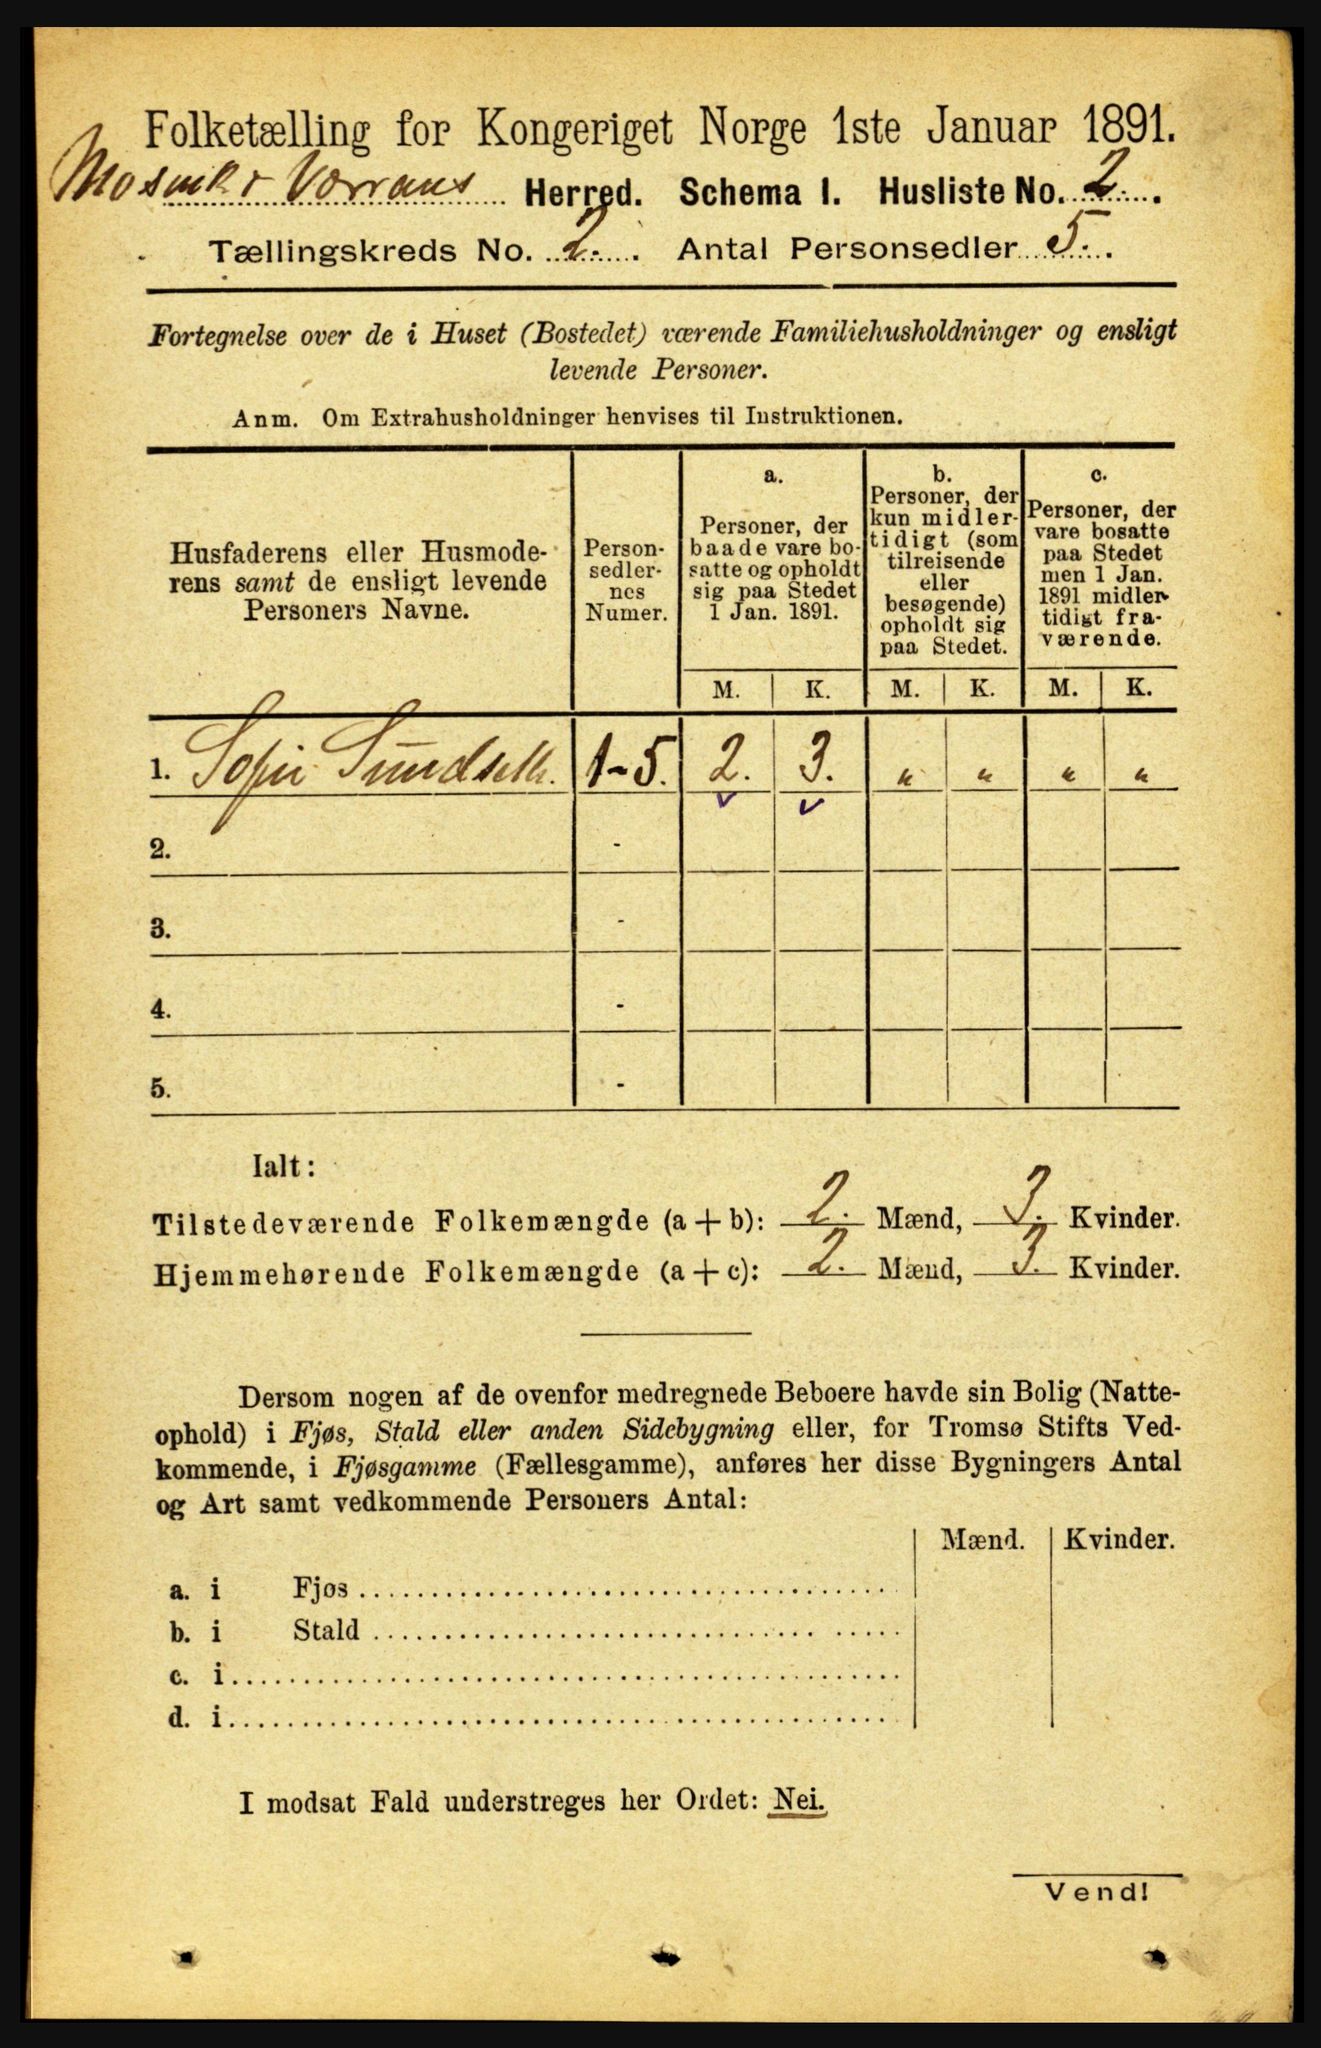 Folketælling for Kongeriget Norge 1ste Januar 1891.
Mosvik & Værrans Herred. Schema I. Husliste No. 2.
Tællingskreds No. 2. Antal Personsedler 5.
Fortegnelse over de i Huset (Bostedet) værende Familiehusholdninger og ensligt
levende Personer.
Anm. Om Extrahusholdninger henvises til Instruktionen.
Husfaderens eller Husmode-
rens samt de ensligt levende
Personers Navne.
Person-
sedler-
nes
Numer.
a.
Personer, der
baade vare bo-
satte og opholdt
sig paa Stedet
1 Jan. 1891.
b.
Personer, der
kun midler-
tidigt (som
tilreisende
eller
besøgende)
opholdt sig
paa Stedet.
c.
Personer, der
vare bosatte
paa Stedet
men 1 Jan.
1891 midler-
tidigt fra-
værende.
M. K. M. K. M. K.
1. Sofie 1-5. 2. 3. " " " "
2. -
3. -
4. -
5. -
Ialt:
Tilstedeværende Folkemængde (a + b): 2. Mænd, 3. Kvinder.
Hjemmehørende Folkemængde (a + c): 2. Mænd, 3. Kvinder.
Dersom nogen af de ovenfor medregnede Beboere havde sin Bolig (Natte-
ophold) i Fjøs, Stald eller anden Sidebygning eller, for Tromsø Stifts Ved-
kommende, i Fjøsgamme (Fællesgamme), anføres her disse Bygningers Antal
og Art samt vedkommende Personers Antal:
Mænd. Kvinder.
a. i Fjøs
b. i Stald
c. i
d. i
I modsat Fald understreges her Ordet: Nei.
Vend!